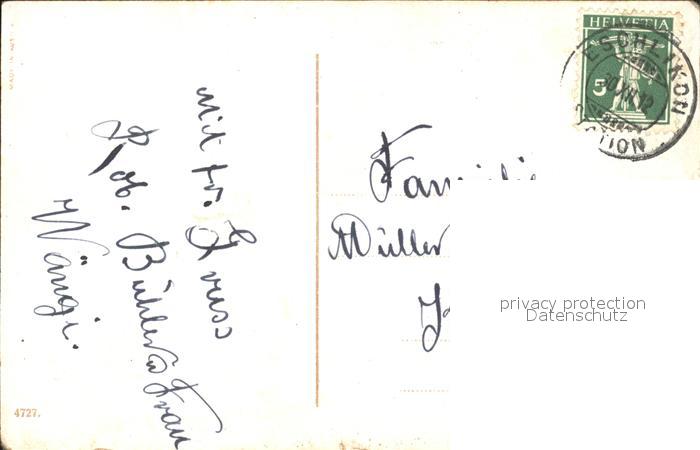 MADE IN
Mit fr. Gruss
Rob. Bühler u Frau
Wängi.
4727.
HELVETIA
5
ESCHLIKON
30.XII.12
STATION
Familie
Müller
privacy protection
Datenschutz